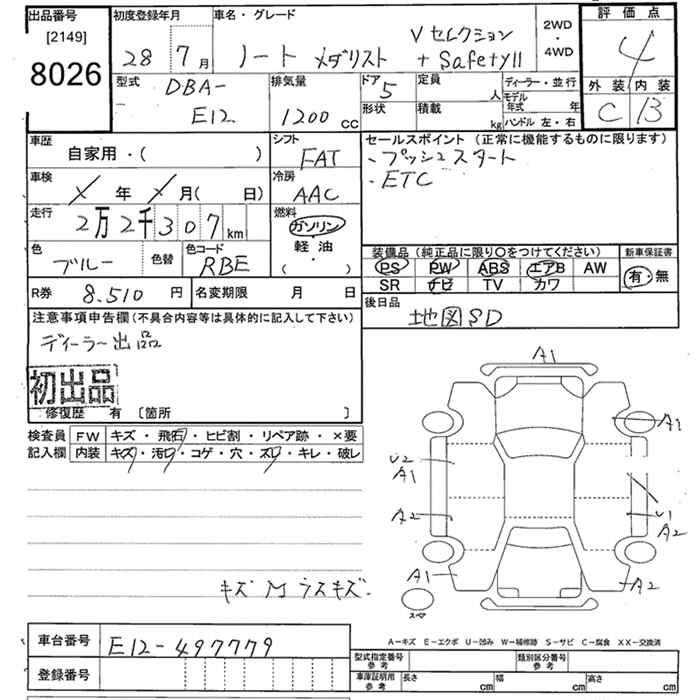 出品番号 初度登録年月 車名・グレード 評価点
[2149] 8026
28年 7月 ノート メダリスト Vセレクション + SafetyII 2WD・4WD 4
外装 内装
C B
型式 DBA-E12 排気量 1200cc ドア 5 形状 定員 人 積載 kg ディーラー・並行 モデル年式 年 ハンドル 左・右
車歴 自家用・( ) シフト FAT セールスポイント (正常に機能するものに限ります)
・プッシュスタート
・ETC
車検 年 月( 日) 冷房 AAC
走行 2万2千307km 燃料 ガソリン・軽油・( )
色 ブルー 色替 色コード RBE
装備品 (純正品に限り○をつけてください) 新車保証書
PS PW ABS エアB AW 有・無
SR ナビ TV カワ
R券 8.510円 名変期限 月 日
後日品 地図SD
注意事項申告欄 (不具合内容等は具体的に記入して下さい)
ディーラー出品
初出品
修復歴 有 [箇所 ]
検査員 FW キズ・飛石・ヒビ割・リペア跡・×要
記入欄 内装 キズ・汚レ・コゲ・穴・スレ・キレ・破レ
A1
A1
U2
A1
A2
U1
A2
A1
A2
スペア
A-キズ E-エクボ U-凹み W-補修跡 S-サビ C-腐食 XX-交換済
車台番号 E12-497779
登録番号
型式指定番号 参考 類別区分番号 参考
車庫証明用 参考 長さ cm 幅 cm 高さ cm